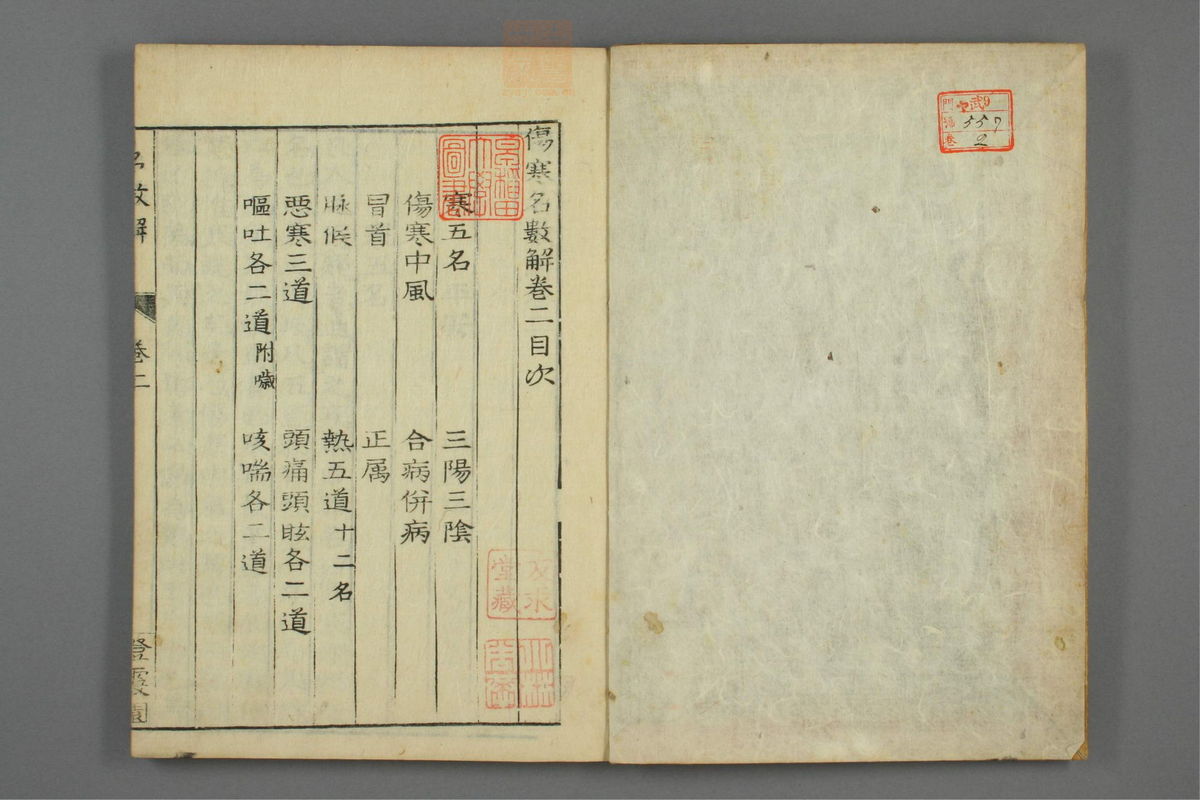 傷寒名數解卷二目次
寒五名 三陽三陰
傷寒中風 合病併病
冒首 正属
脉候 熱五道十二名
悪寒三道 頭痛頭眩各二道
嘔吐各二道附噦 咳喘各二道
名数解 卷二 澄霞園
早稲田大學圖書
門
號 557
卷 2